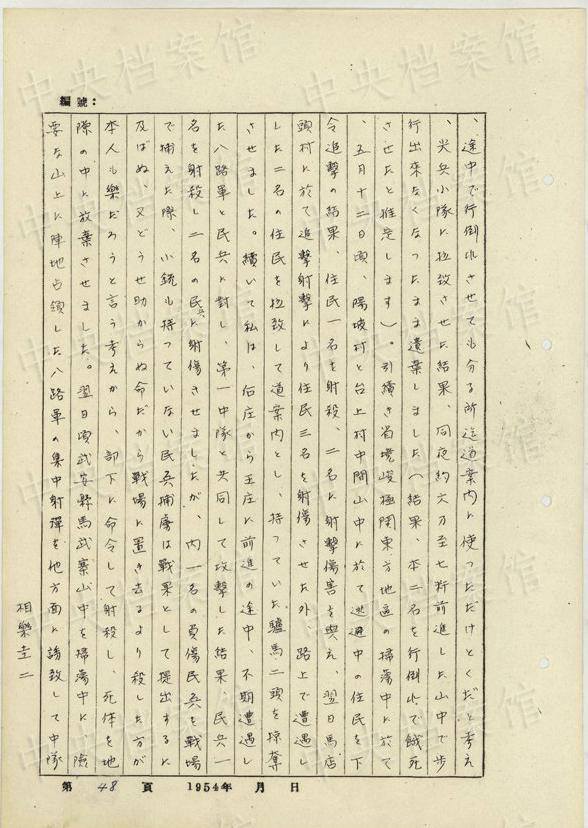 編號：
、途中で行倒れさせても分る所迄道案内に使つただけとくだと考え
、尖兵小隊に拉致させた結果、同夜約六乃至七粁前進した山中で歩
行出来なくなつたまま遺棄しました（結果、本二名を行倒れで餓死
させたと推定します）。引續き省境峻極関東方地區の掃蕩中に於て
、五月十二日頃、陽坡村と台上村中間山中に於て逃避中の住民を下
令追撃の結果、住民一名を射殺、二名に射撃傷害を與え、翌日馬店
頭村に於て追撃射撃により住民三名を射傷させた外、路上で遭遇し
した二名の住民を拉致して道案内とし、持つていた驢馬二頭を掠奪
させました。續いて私は、后庄から王庄に前進の途中、不期遭遇し
た八路軍と民兵に對し、第一中隊と共同して攻撃した結果、民兵一
名を射殺し二名の民兵に射傷させましたが、内一名の負傷民兵を戰場
で捕えた際、小銃も持つていない民兵捕虜は戰果として提出するに
及ばぬ、又どうせ助からぬ命だから戰場に置き去るより殺した方が
本人も樂だろうと言う考えから、部下に命令して射殺し、死体を地
隙の中に放棄させました。翌日頃武安縣馬武寨山中を掃蕩中に、險
要な山上に陣地占領した八路軍の集中射彈を他方面に誘致して中隊
相樂圭二
第 48 頁 1954年 月 日
中央档案馆